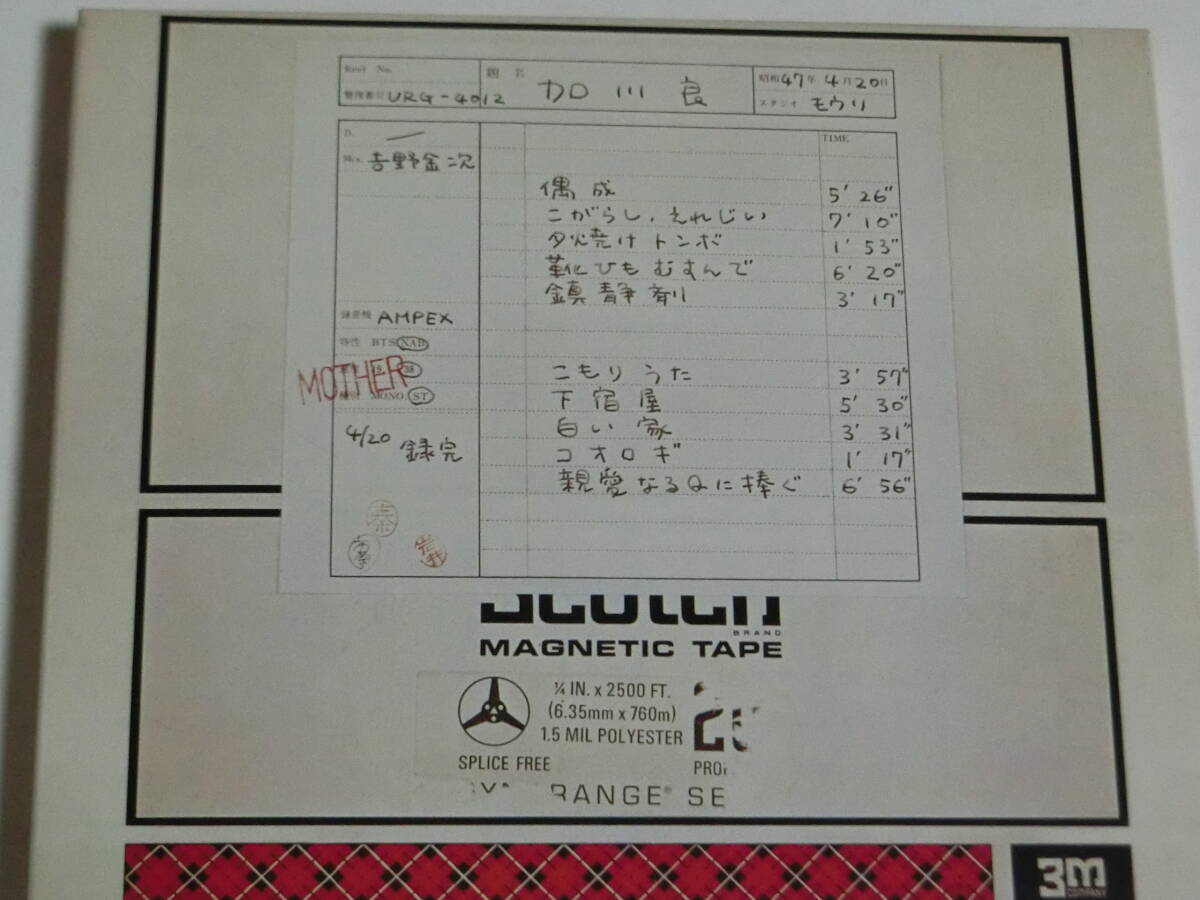 Reel No.
整理番号 URG-4012
題名 加川良
昭和47年4月20日
スタジオ モウリ
D. —
Mix. 吉野金次
TIME
偶成 5' 26"
こがらし、えれじい 7' 10"
夕焼けトンボ 1' 53"
靴ひもむすんで 6' 20"
鎮静剤 3' 17"
録音機 AMPEX
特性 BTS NAB
こもりうた 3' 57"
38
MOTHER
下宿屋 5' 30"
MONO. ST
白い家 3' 31"
4/20 録完
コオロギ 1' 17"
親愛なるQに捧ぐ 6' 56"
BRAND
MAGNETIC TAPE
¼ IN. x 2500 FT.
(6.35mm x 760m)
1.5 MIL POLYESTER
SPLICE FREE
RANGE SE
3M
COMPANY